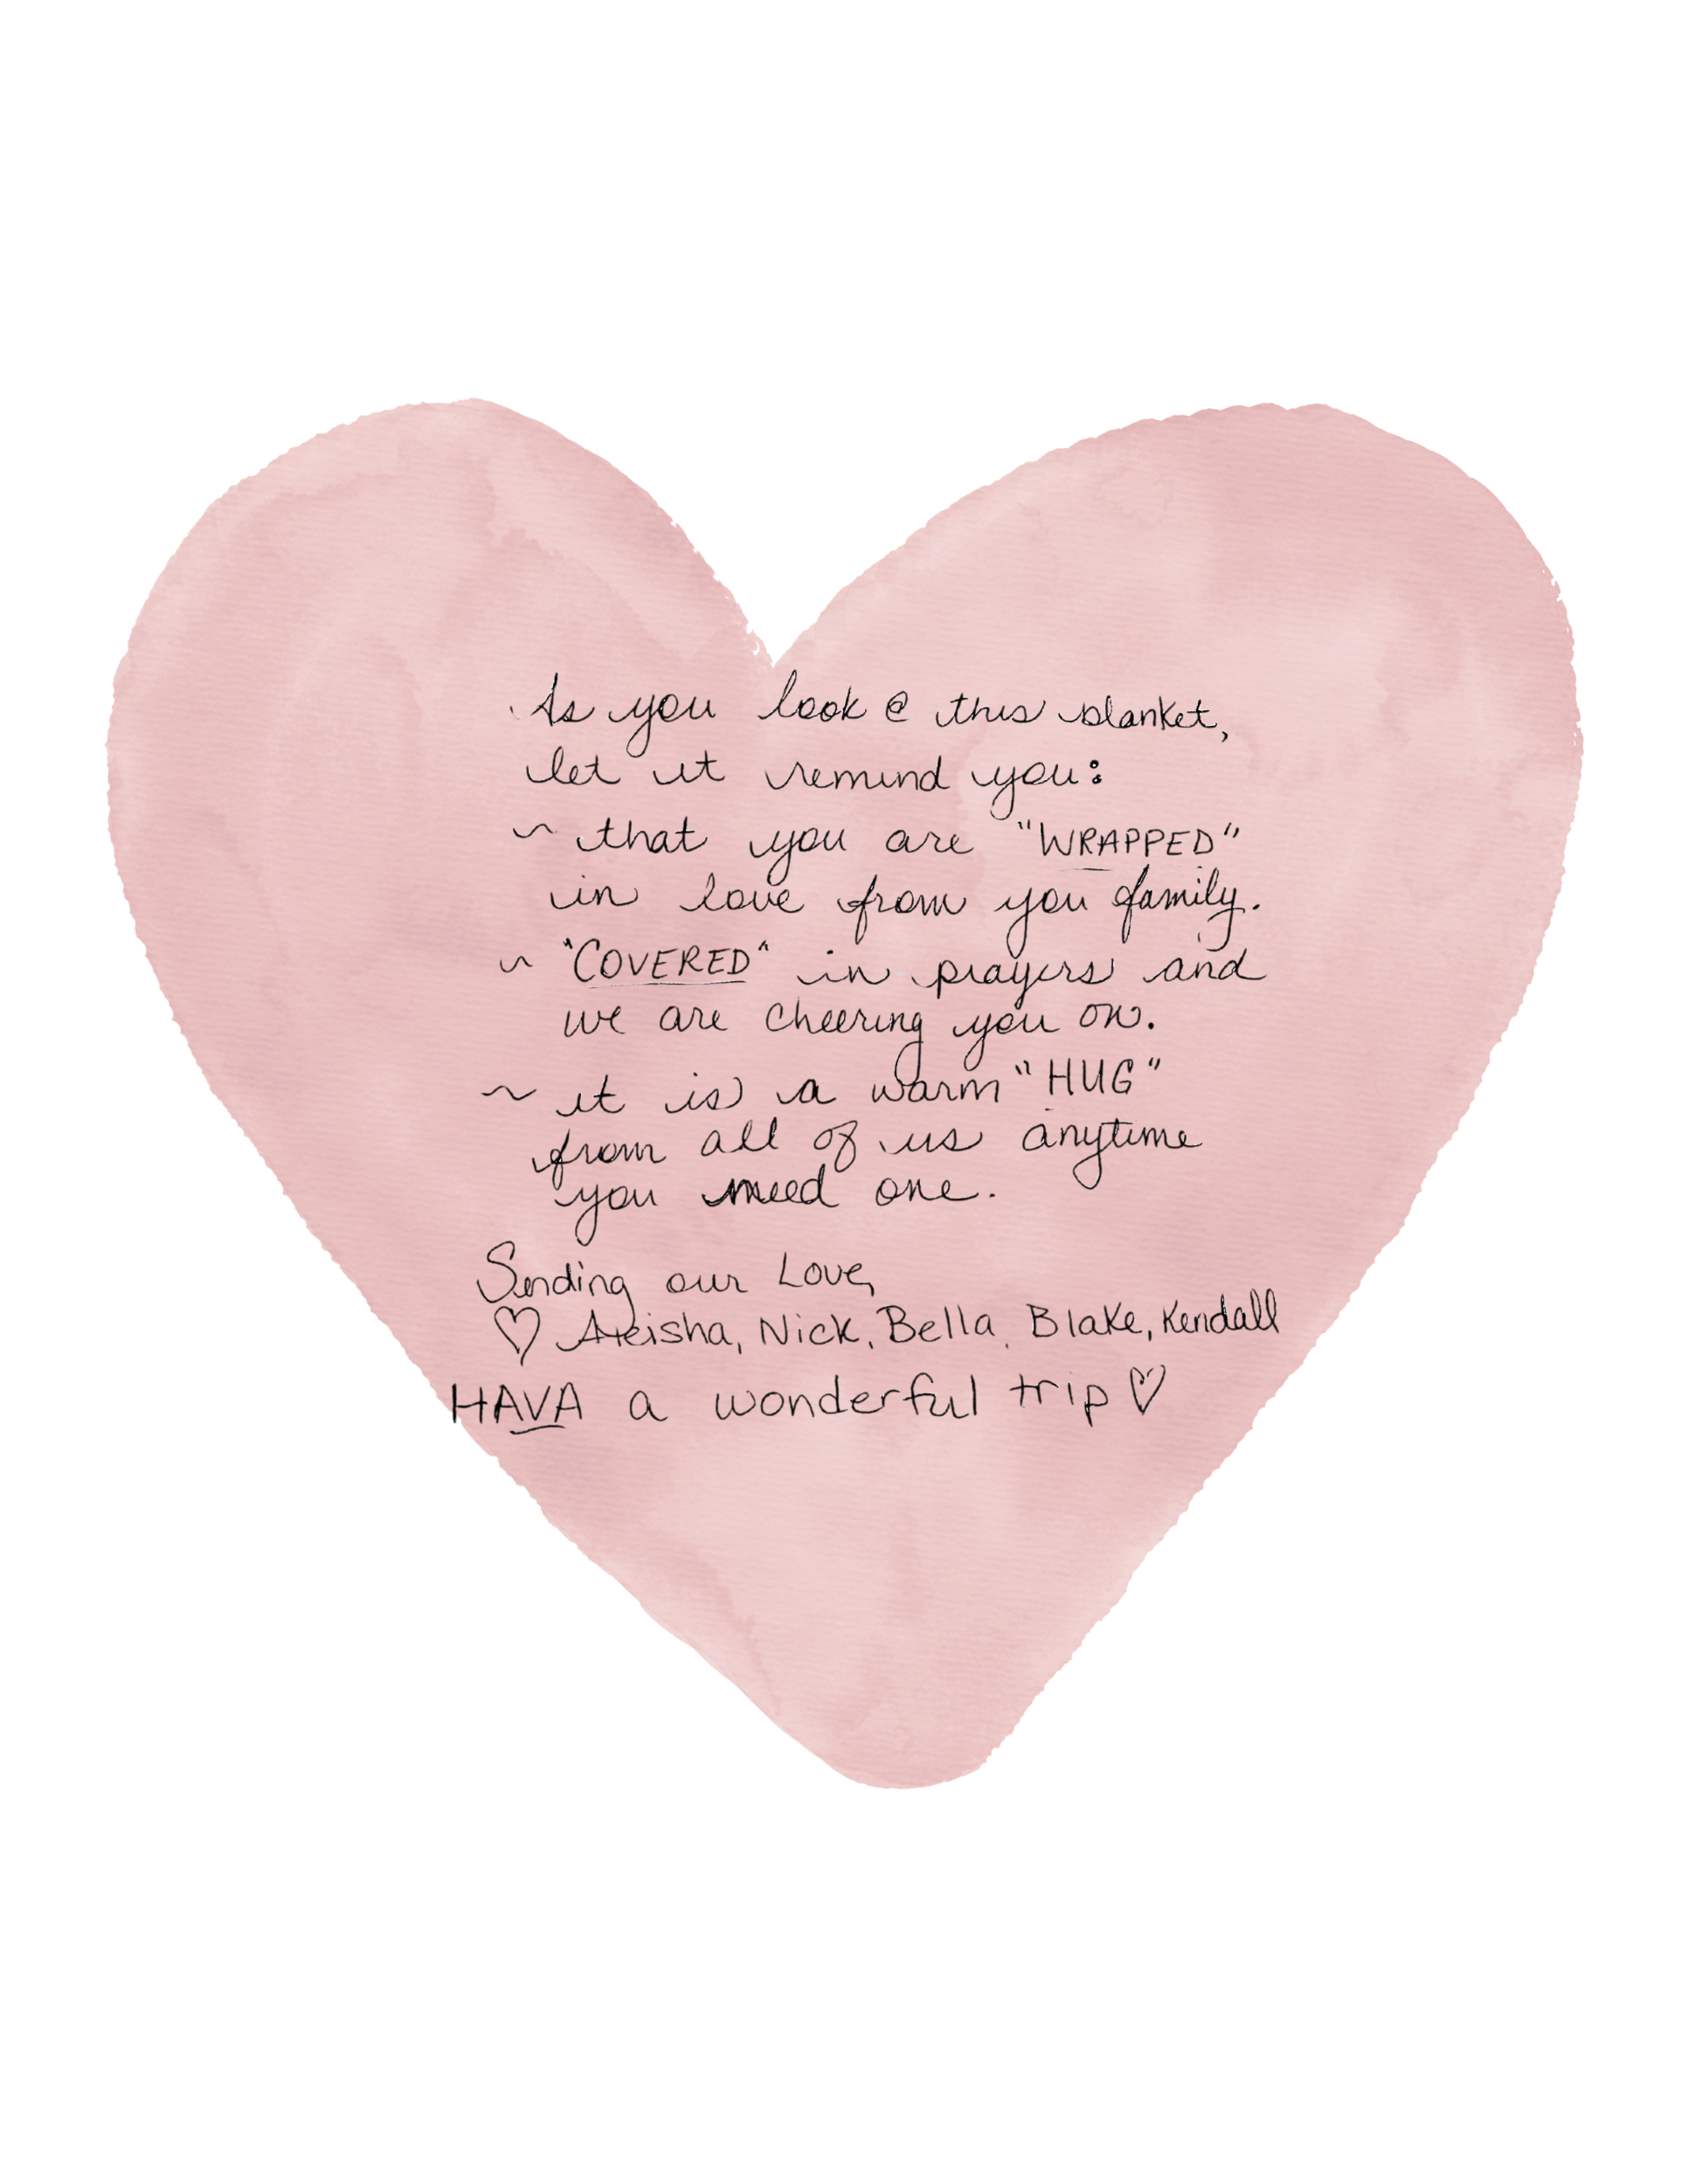 As you look @ this blanket,
let it remind you:
~ that you are "WRAPPED"
in love from you family.
~ "COVERED" in prayers and
we are cheering you on.
~ it is a warm "HUG"
from all of us anytime
you need one.
Sending our Love,
♡ Aleisha, Nick, Bella, Blake, Kendall
HAVA a wonderful trip ♡